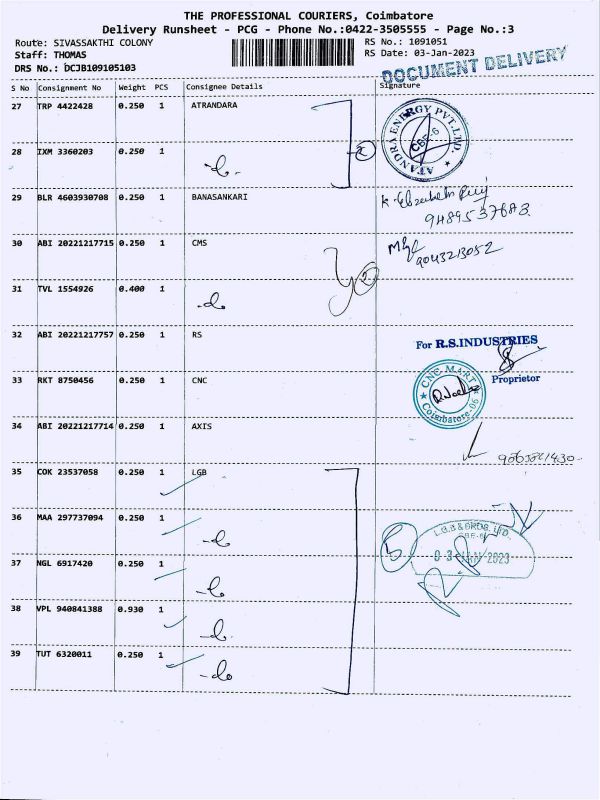 THE PROFESSIONAL COURIERS, Coimbatore
Delivery Runsheet - PCG - Phone No.:0422-3505555 - Page No.:3
Route: SIVASSAKTHI COLONY
RS No.: 1091051
Staff: THOMAS
RS Date: 03-Jan-2023
DRS No.: DCJB109105103
DOCUMENT DELIVERY
S No Consignment No Weight PCS Consignee Details Signature
27 TRP 4422428 0.250 1 ATRANDARA
ATANDRA ENERGY PVT.LTD. CBE-6
28 IXM 3360203 0.250 1 -do- 2
29 BLR 4603930708 0.250 1 BANASANKARI
9489537683
30 ABI 20221217715 0.250 1 CMS
9043213052
2
31 TVL 1554926 0.400 1 -do
32 ABI 20221217757 0.250 1 RS
For R.S.INDUSTRIES
Proprietor
33 RKT 8750456 0.250 1 CNC
CNC MART Coimbatore-06
34 ABI 20221217714 0.250 1 AXIS
35 COK 23537058 0.250 1 LGB
36 MAA 297737094 0.250 1 -do
L.G.B & BROS. LTD.,
CBE-6
5
03 JAN 2023
37 NGL 6917420 0.250 1 -do
38 VPL 940841388 0.930 1 -do
39 TUT 6320011 0.250 1 -do